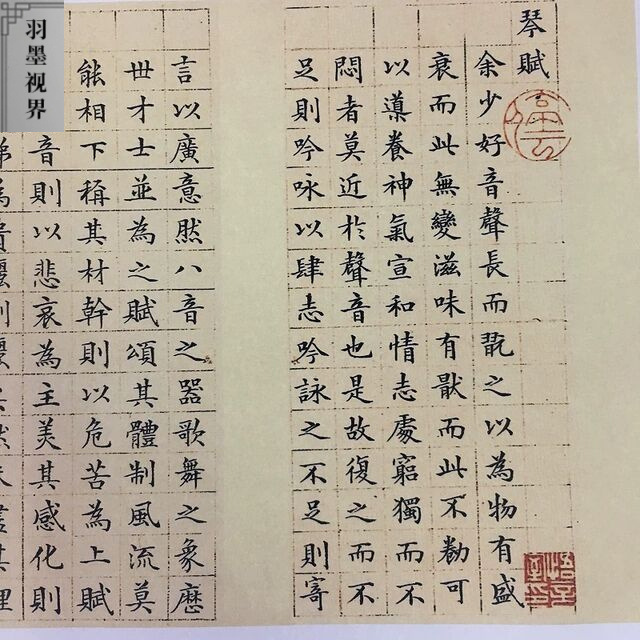 琴賦
余少好音聲長而翫之以為物有盛
衰而此無變滋味有猒而此不勌可
以導養神氣宣和情志處窮獨而不
悶者莫近於聲音也是故復之而不
足則吟咏以肆志吟詠之不足則寄
言以廣意然八音之噐歌舞之象歷
世才士並為之賦頌其體制風流莫
能相下稱其材幹則以危苦為上賦
音則以悲哀為主美其感化則
羽墨視界